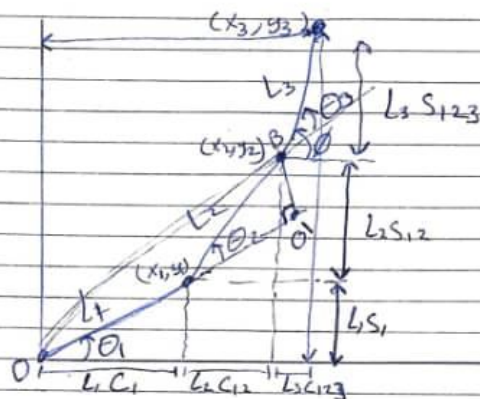 (x3, y3)
L3
θ3
L3 S123
B
φ
(x2, y2)
L2
θ2
O'
L2 S12
(x1, y1)
L1
θ1
L1 S1
O
L1 C1
L2 C12
L3 C123